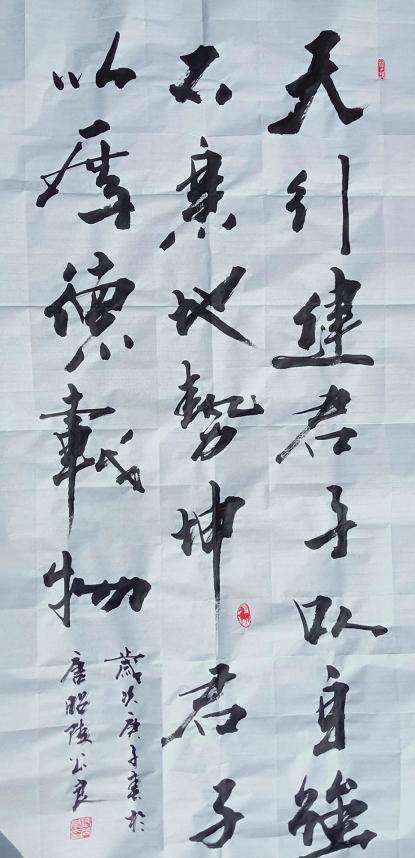 天行健君子以自强
不息地势坤君子
以厚德载物
岁次庚子春于
唐昭陵